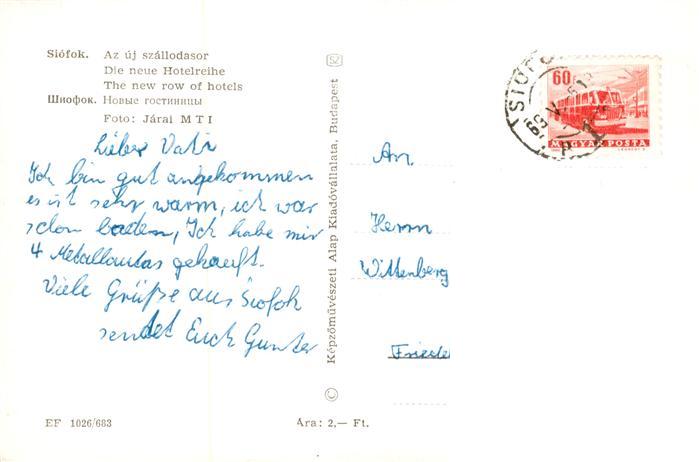 Siófok. Az új szállodasor
Die neue Hotelreihe
The new row of hotels
Шиофок. Новые гостиницы
Foto: Járai MTI
Lieber Vati
Ich bin gut angekommen
es ist sehr warm, ich war
schon baden, Ich habe mir
4 Metallautos gekauft.
Viele Grüße aus Siofok
sendet Euch Gunter
EF 1026/683
Ára: 2,— Ft.
Képzőművészeti Alap Kiadóvállalata, Budapest
An
Herrn
Wittenberg
Friede
60f
MAGYAR POSTA
SIÓFO